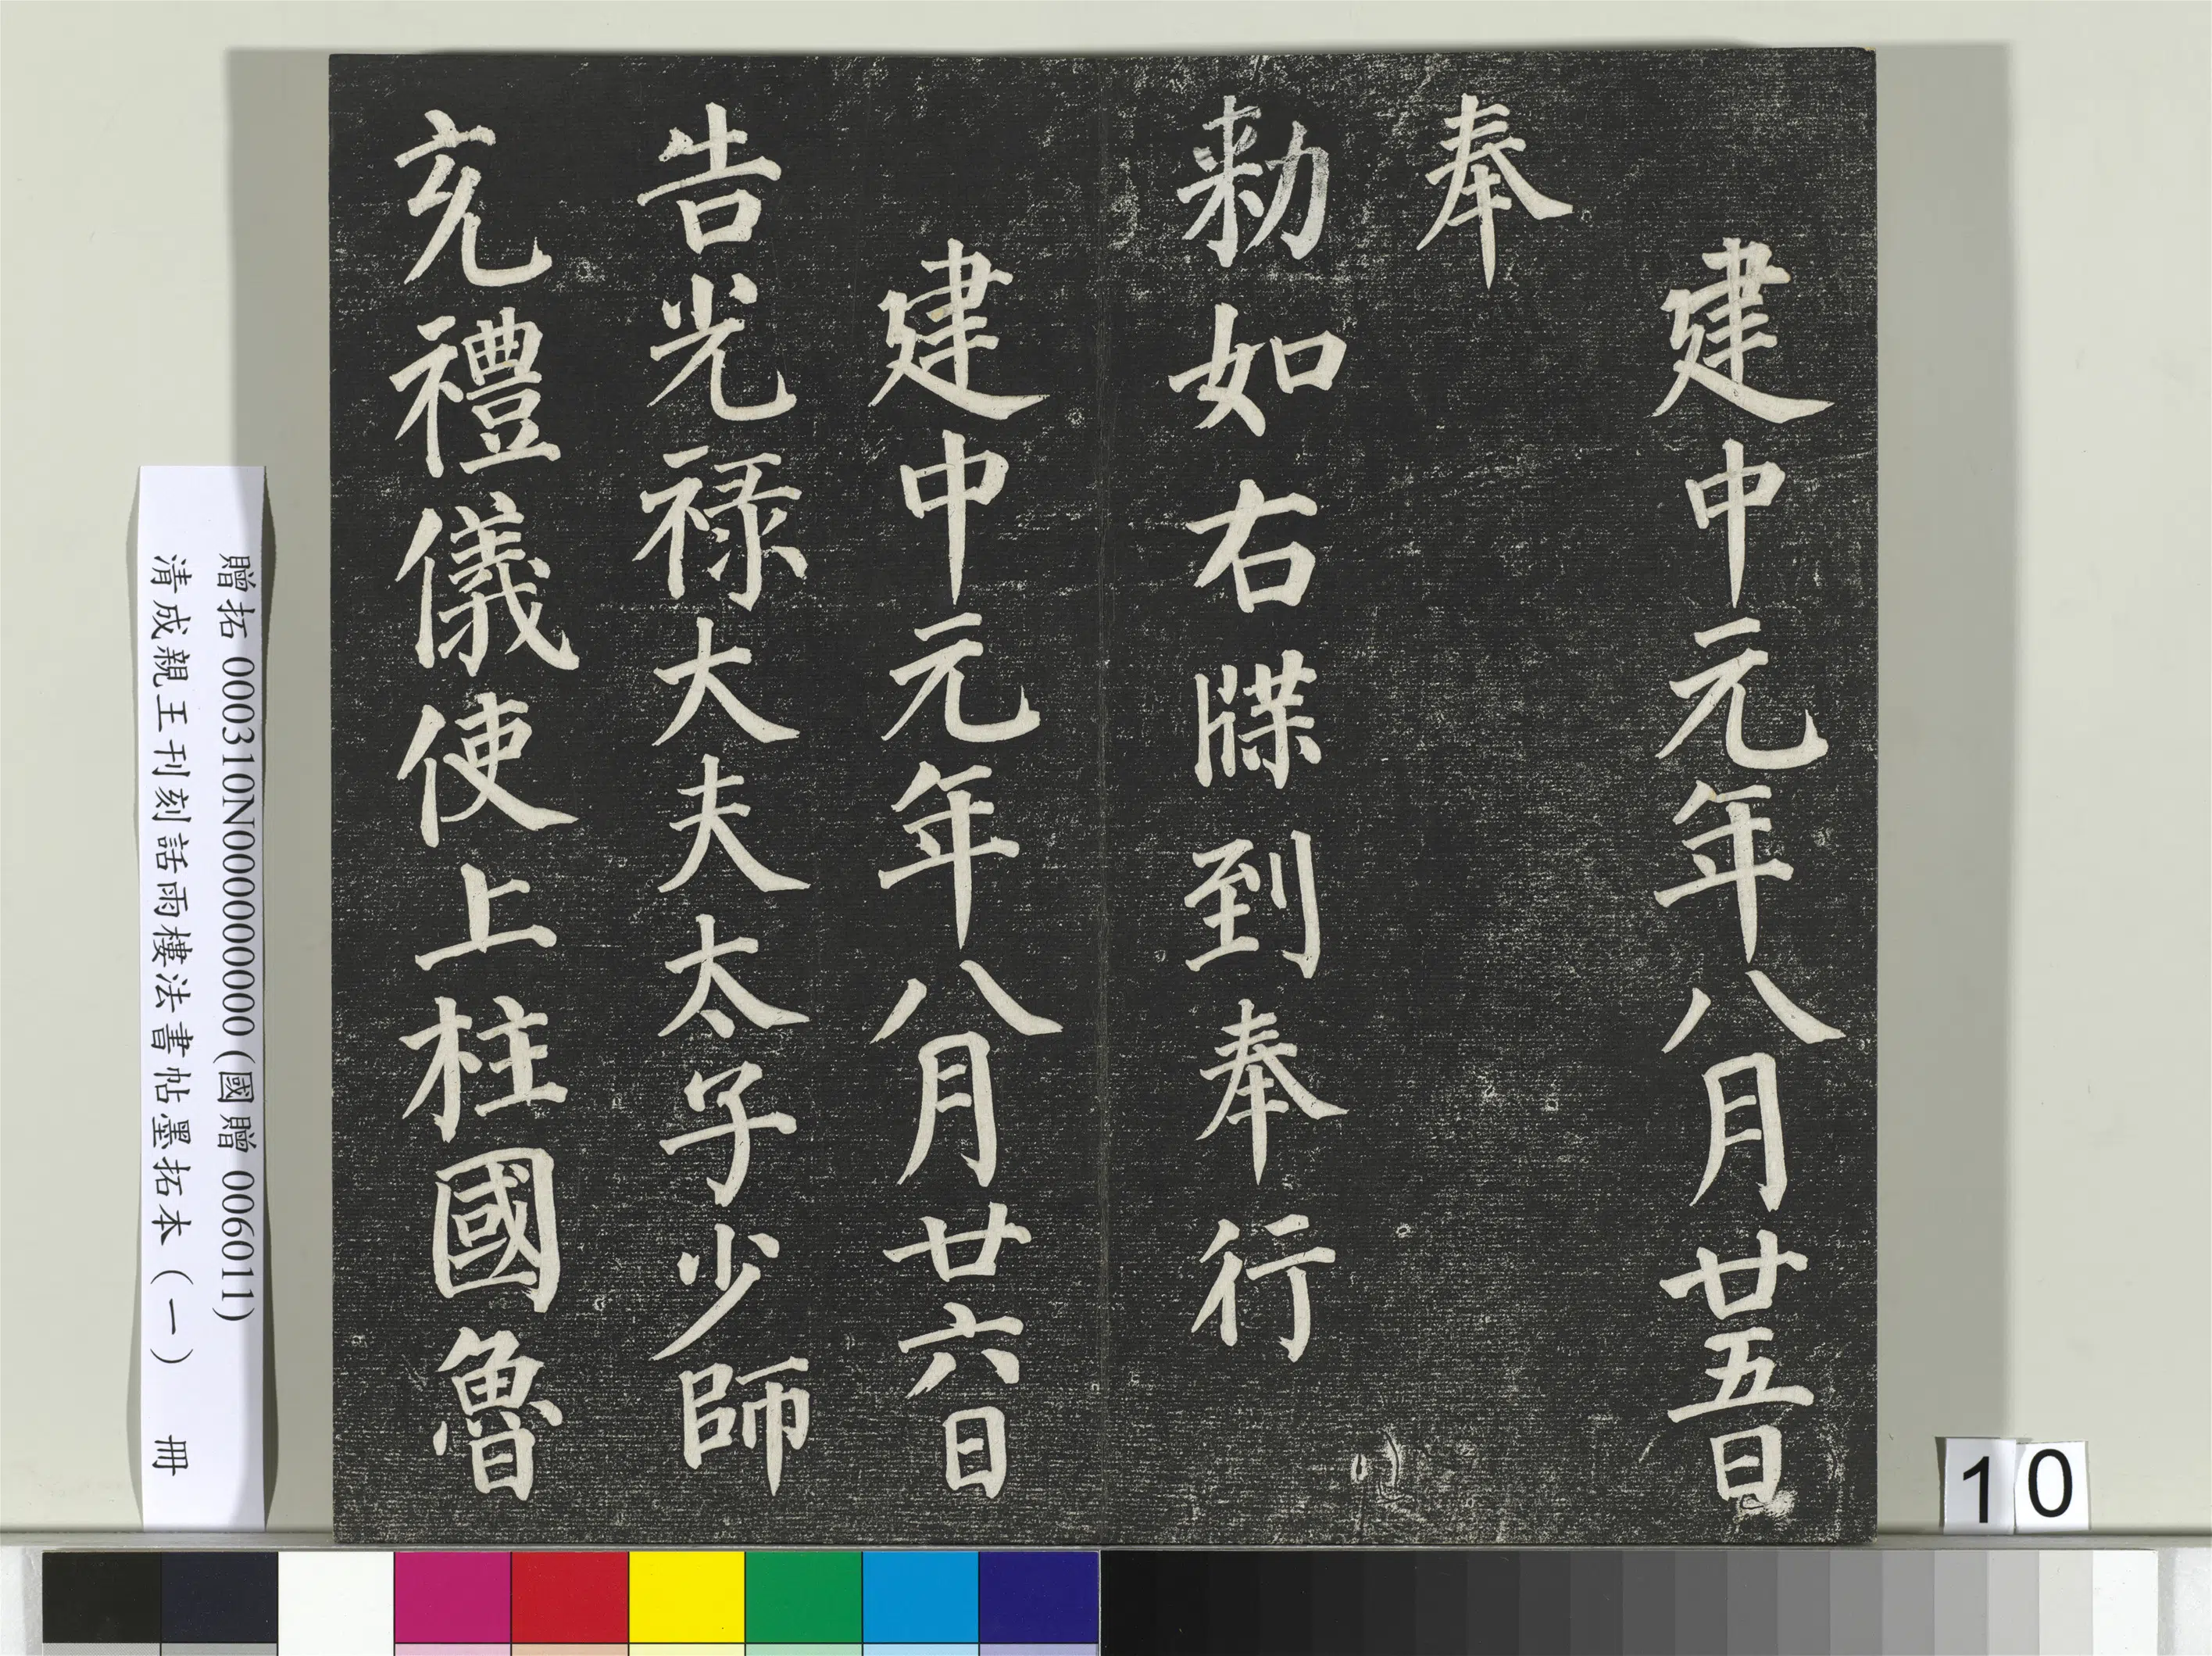 建中元年八月廿五日
奉
勑如右牒到奉行
建中元年八月廿六日
告光禄大夫太子少師
充禮儀使上柱國魯
贈拓 000310N000000000(國贈 006011)
清成親王刊刻話雨樓法書帖墨拓本(一) 冊
10